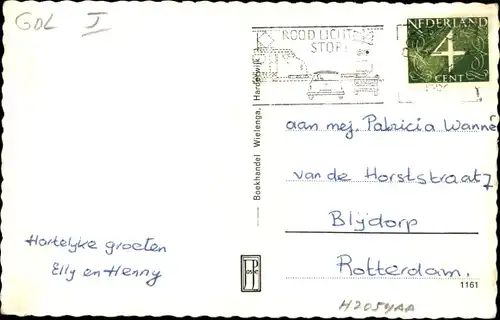 GOL I
ROOD LICHT
STOP!
NEDERLAND
4
CENT
Boekhandel Wielenga, Harderwijk
aan mej. Patricia Wanné
van de Horststraat 7
Blijdorp
Rotterdam.
Hartelijke groeten
Elly en Henny
1161
H2054AA